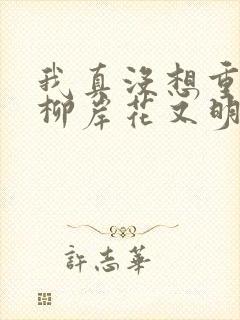 我真没想重
柳岸花又明
許志華